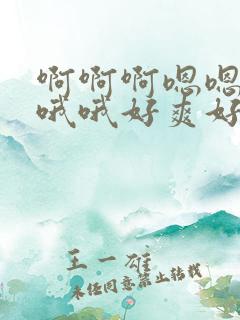 啊啊啊嗯嗯
哦哦好爽好
王一雄
未经同意禁止转载